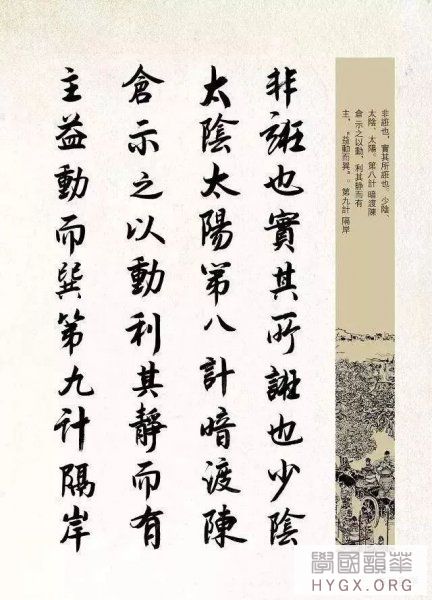 非誑也，實其所誑也。少陰、
太陰、太陽。第八計 暗渡陳
倉 示之以動，利其静而有
主，“益動而巽”。 第九計 隔岸
非誑也實其所誑也少陰
太陰太陽第八計暗渡陳
倉示之以動利其靜而有
主益動而巽第九計隔岸
華韻國學
HYGX.ORG